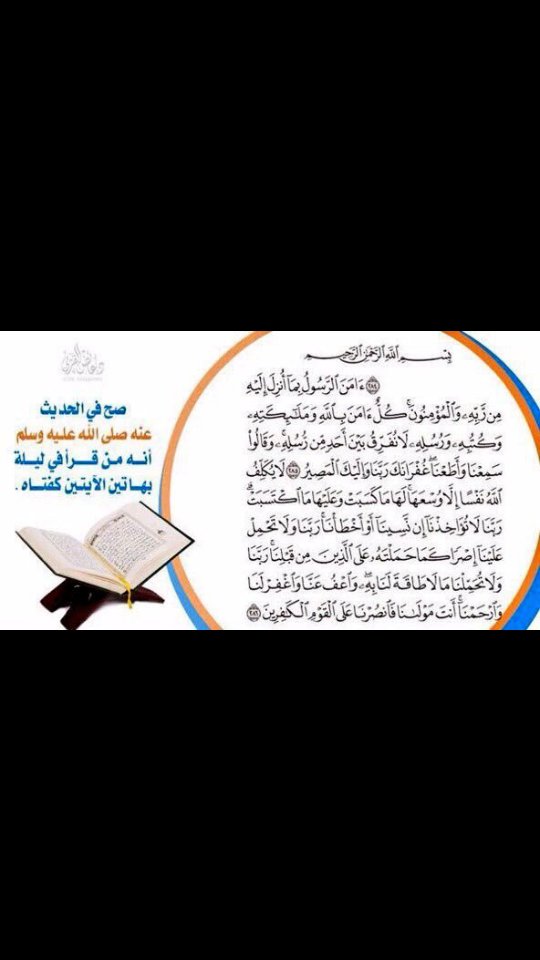 بِسْمِ اللَّهِ الرَّحْمَٰنِ الرَّحِيمِ
٢٨٤ ءَامَنَ الرَّسُولُ بِمَا أُنزِلَ إِلَيْهِ
مِن رَّبِّهِ وَالْمُؤْمِنُونَ كُلٌّ ءَامَنَ بِاللَّهِ وَمَلَائِكَتِهِ
وَكُتُبِهِ وَرُسُلِهِ لَا نُفَرِّقُ بَيْنَ أَحَدٍ مِّن رُّسُلِهِ وَقَالُوا
سَمِعْنَا وَأَطَعْنَا غُفْرَانَكَ رَبَّنَا وَإِلَيْكَ الْمَصِيرُ ٢٨٥ لَا يُكَلِّفُ
اللَّهُ نَفْسًا إِلَّا وُسْعَهَا لَهَا مَا كَسَبَتْ وَعَلَيْهَا مَا اكْتَسَبَتْ
رَبَّنَا لَا تُؤَاخِذْنَا إِن نَّسِينَا أَوْ أَخْطَأْنَا رَبَّنَا وَلَا تَحْمِلْ
عَلَيْنَا إِصْرًا كَمَا حَمَلْتَهُ عَلَى الَّذِينَ مِن قَبْلِنَا رَبَّنَا
وَلَا تُحَمِّلْنَا مَا لَا طَاقَةَ لَنَا بِهِ وَاعْفُ عَنَّا وَاغْفِرْ لَنَا
وَارْحَمْنَا أَنتَ مَوْلَانَا فَانصُرْنَا عَلَى الْقَوْمِ الْكَافِرِينَ ٢٨٦
صح في الحديث
عنه صلى الله عليه وسلم
أنه من قرأ في ليلة
بهاتين الآيتين كفتاه .